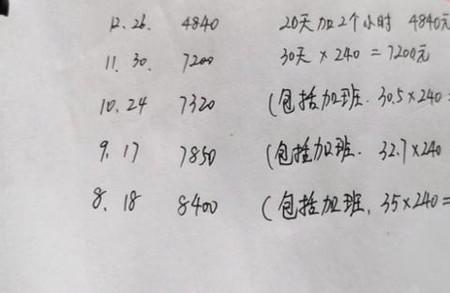 12. 26. 4840 20天加2个小时 4840元
11. 30. 7200 30天×240=7200元
10. 24 7320 (包括加班. 30.5×240=
9. 17 7850 (包括加班. 32.7×240
8. 18 8400 (包括加班, 35×240=